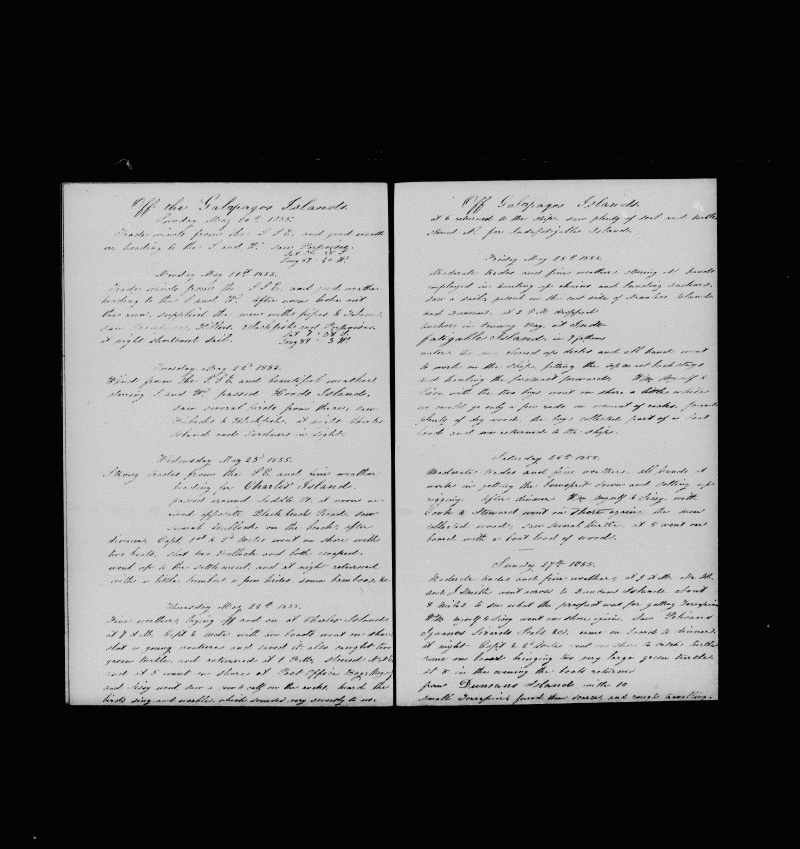 Off the Galapagos Islands.
Sunday May 20th 1855.
Trade winds from the S S E, and good weather
heading to the S and W. saw Porpoises.
Monday May 21st 1855.
Trade winds from the S S E, and good weather
heading to the S and W. After noon broke out
the run, supplied the men with pipes & Tobacco.
saw Blackfish and Porpoises,
at night shortened sail.
Tuesday May 22d 1855.
Wind from the S S E and beautiful weather
steering S and W. passed Hoods Island,
saw several birds from there, saw
& Blackfish, at night Charles
Island and Gardners in sight.
Wednesday May 23d 1855.
Strong trades from the S E and fine weather
heading for Charles Island.
passed around Saddle Pt, at noon
opposite Black beach Road, saw
several Bullocks on the beach, after
dinner, Capt, 1st & 2d Mates went on shore with
two boats, shot two Bullock and both escaped,
went up to the settlement, and at night returned
with a little a few some bamboos, &c.
Thursday May 24th 1855.
Fine weather, laying off and on at Charles Island
at 7 A M. Capt & mate with two boats went on shore
shot a young and saved it, also caught two
green turtles and returned at 1 P M, steered
and at 3 went on shore at Post Office Bay,
and Sissy went saw a cow & calf on the rocks, heard the
birds sing and warble, which sounded very sweetly to us.
Off Galapagos Islands.
at 6 returned to the ship. saw plenty of seal and turtle
steered N. for Indefatigable Island.
Friday May 25th 1855.
Moderate trades and fine weather, steering N. hands
employed in bending up chains and anchors,
saw a sail, passed on the east side of Island
and Duncans, at 2 P.M. dropped
anchor in Bay, at Inde
fatigable Island, in 7 fathoms
water, the men cleared up decks and all hands went
to work on the ship, fitting the top mast backstays
and heaving the foremast forwards. Wm myself &
Sissy with the two boys went on shore a little whiles
we could go only a few rods on account of rocks, found
plenty of dry wood, the boys collected part of a boat
load and we returned to the ship.
Saturday 26th 1855.
Moderate trades and fine weather. all hands at
work in getting the bowsprit down and setting up
rigging. After dinner Wm myself & Sissy, with
Cook & Steward went on shore again, the men
collected wood, saw several turtle. at 5 went on
board with a boat load of wood.
Sunday 27th 1855.
Moderate trades and fine weather, at 7 A M. Mr
and J Smith went across to Duncans Island, about
8 miles to see what the prospect was for getting Terrapin
Wm myself & Sissy went on shore again. Saw Pelicans
Iguanas Lizards Seals &c. came on board to dinner,
at night Capt & 2d Mates went on shore to catch turtle
came on board bringing two very large green turtles.
at 8 in the evening the boats returned
from Duncans Island with 10
small Terrapins, found them scarce, and rough travelling.